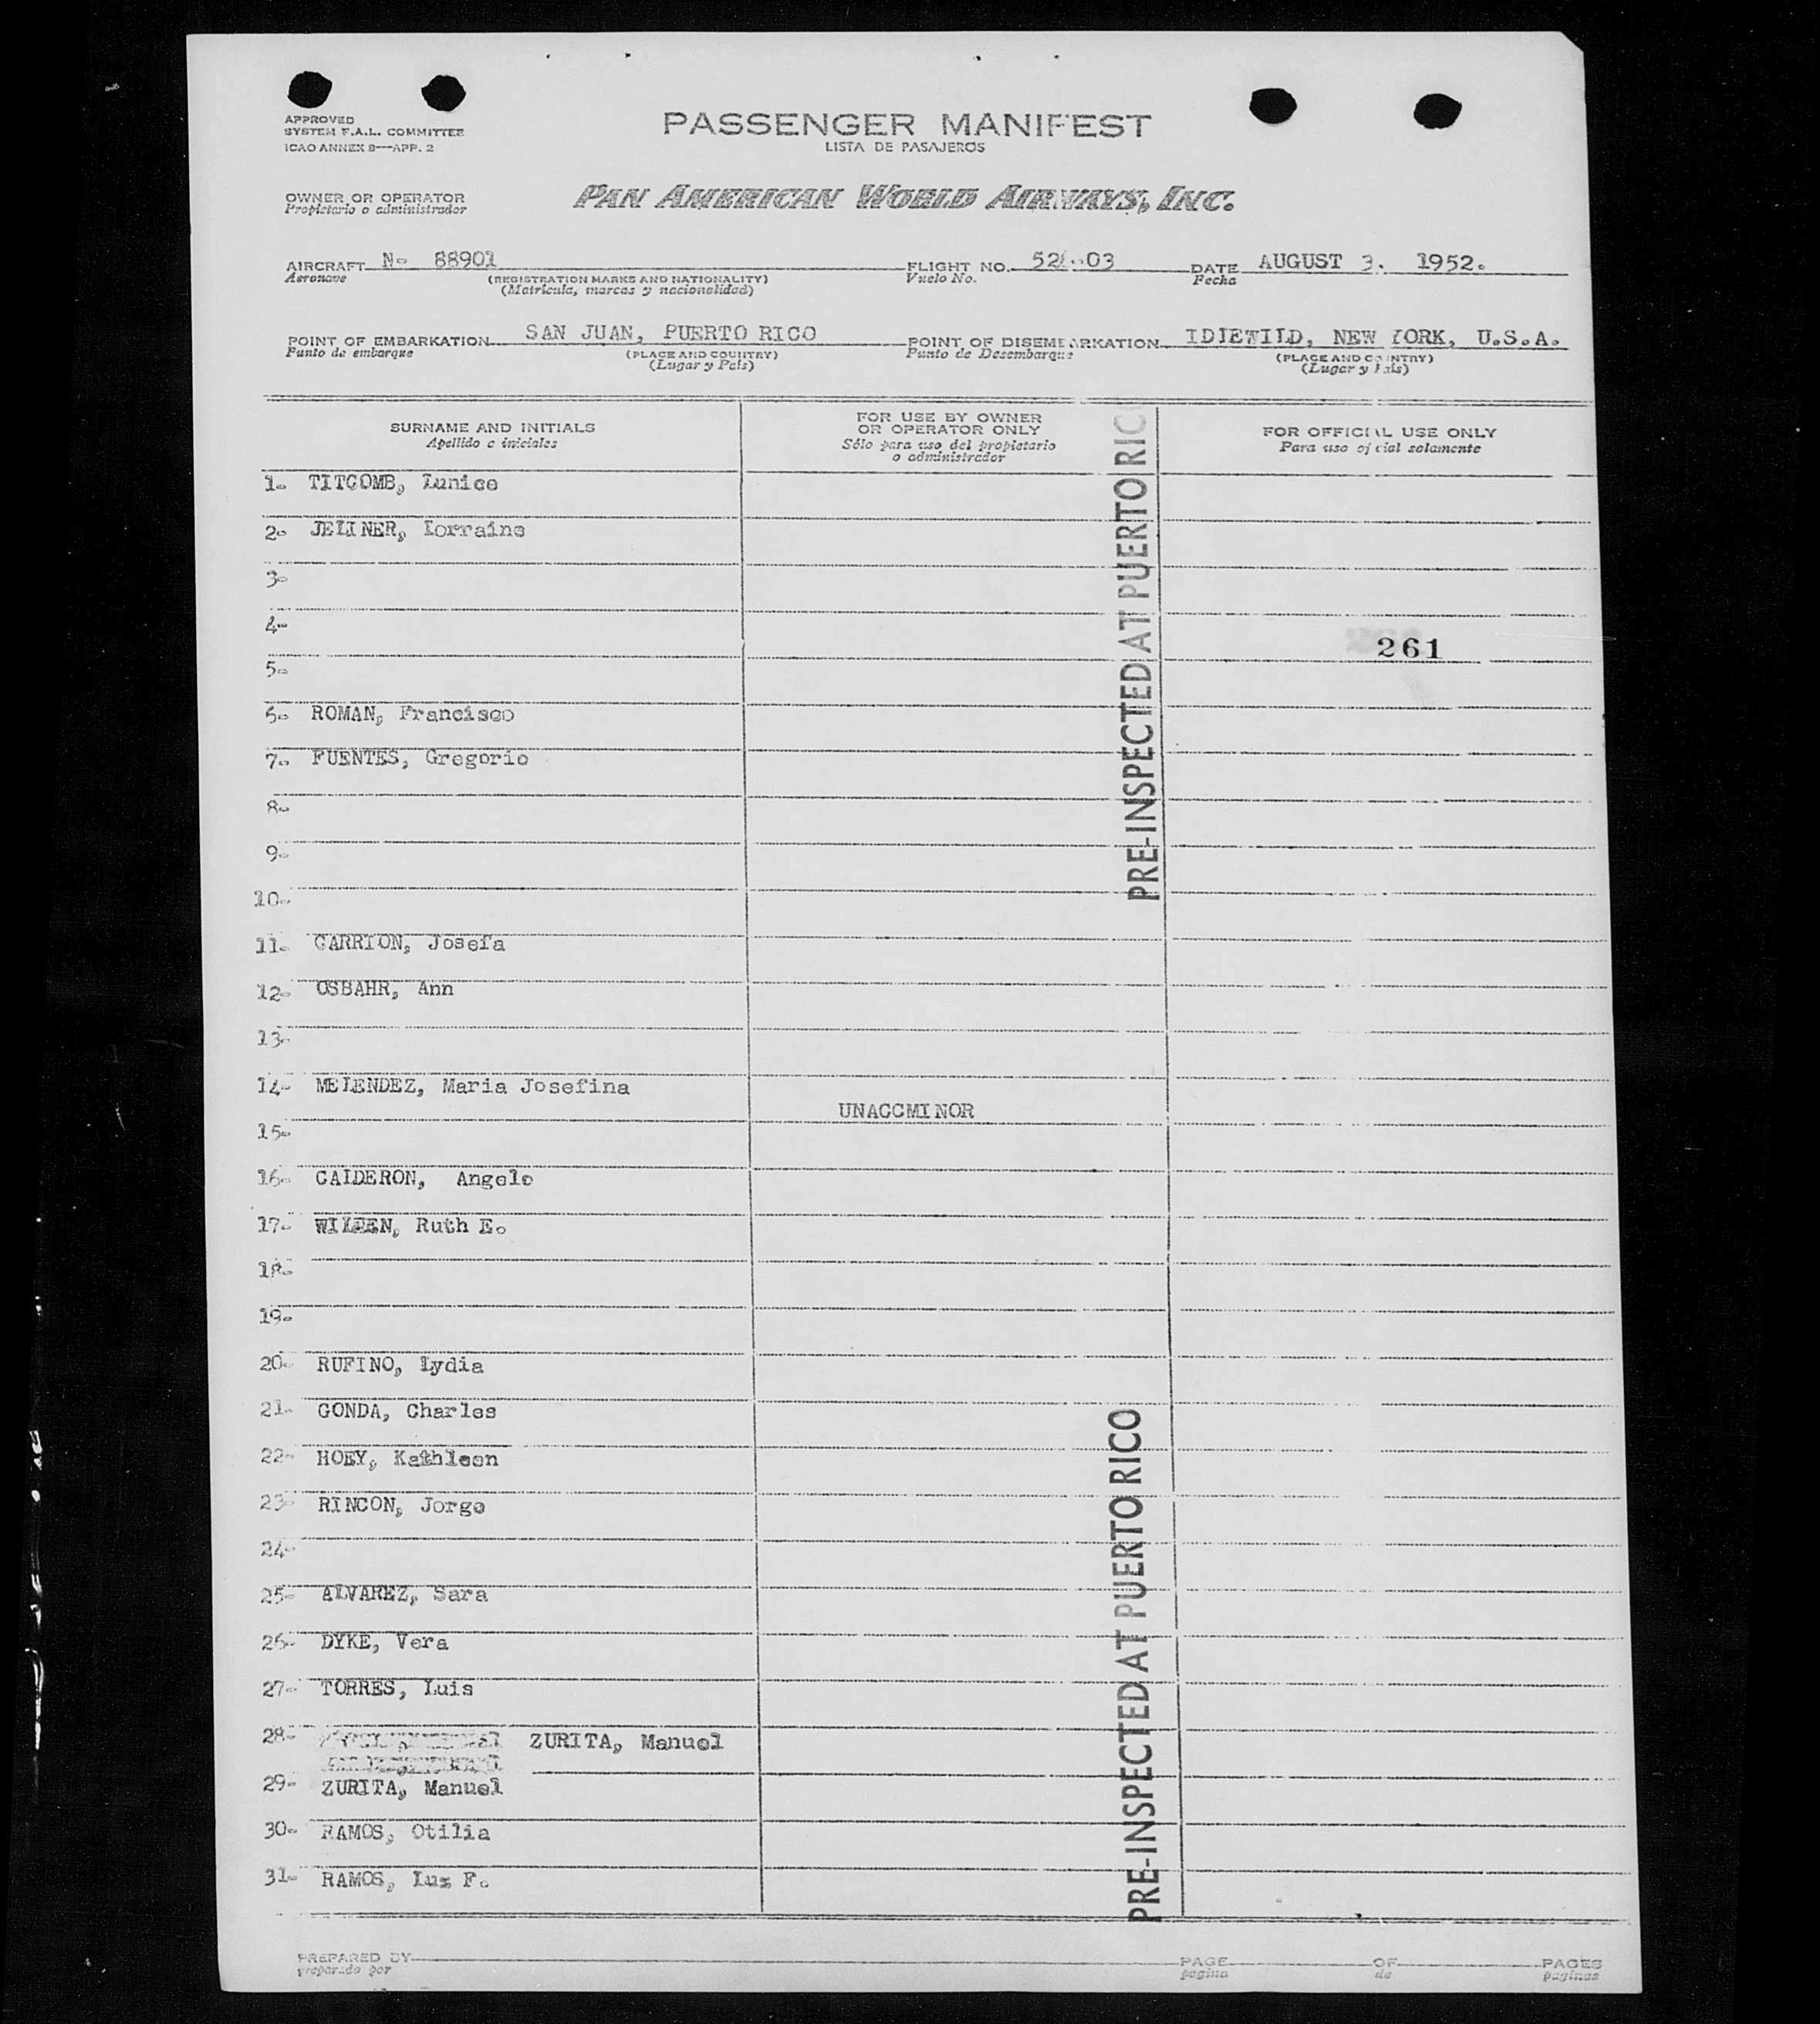 APPROVED
SYSTEM F.A.L. COMMITTEE
ICAO ANNEX 9—APP. 2
PASSENGER MANIFEST
LISTA DE PASAJEROS
OWNER OR OPERATOR
Propietario o administrador
PAN AMERICAN WORLD AIRWAYS, INC.
AIRCRAFT No 88901
Aeronave
(REGISTRATION MARKS AND NATIONALITY)
(Matrícula, marcas y nacionalidad)
FLIGHT NO.
Vuelo No.
DATE AUGUST 3. 1952.
Fecha
POINT OF EMBARKATION SAN JUAN, PUERTO RICO
Punto de embarque
(PLACE AND COUNTRY)
(Lugar y País)
POINT OF DISEMBARKATION IDIEWILD, NEW YORK, U.S.A.
Punto de Desembarque
(PLACE AND COUNTRY)
(Lugar y País)
SURNAME AND INITIALS
Apellido e iniciales
FOR USE BY OWNER
OR OPERATOR ONLY
Sólo para uso del propietario
o administrador
FOR OFFICIAL USE ONLY
Para uso oficial solamente
1- TITCOMB, Eunice
2- JELINER, Lorraine
3-
4-
261
5-
6- ROMAN, Francisco
7- FUENTES, Gregorio
8-
9-
10-
11- CARRION, Josefa
12- OSBAHR, Ann
13-
14- MELENDEZ, Maria Josefina
UNACCMINOR
15-
16- CALDERON, Angelo
17- Ruth E.
18-
19-
20- RUFINO, Lydia
21- GONDA, Charles
22- HOEY, Kathleen
23- RINCON, Jorge
24-
25- ALVAREZ, Sara
26- DYKE, Vera
27- TORRES, Luis
28- ZURITA, Manuel
29- ZURITA, Manuel
30- RAMOS, Otilia
31- RAMOS, Luz F.
PRE-INSPECTED AT PUERTO RICO
PRE-INSPECTED AT PUERTO RICO
PREPARED BY
preparado por
PAGE OF PAGES
pagina de paginas